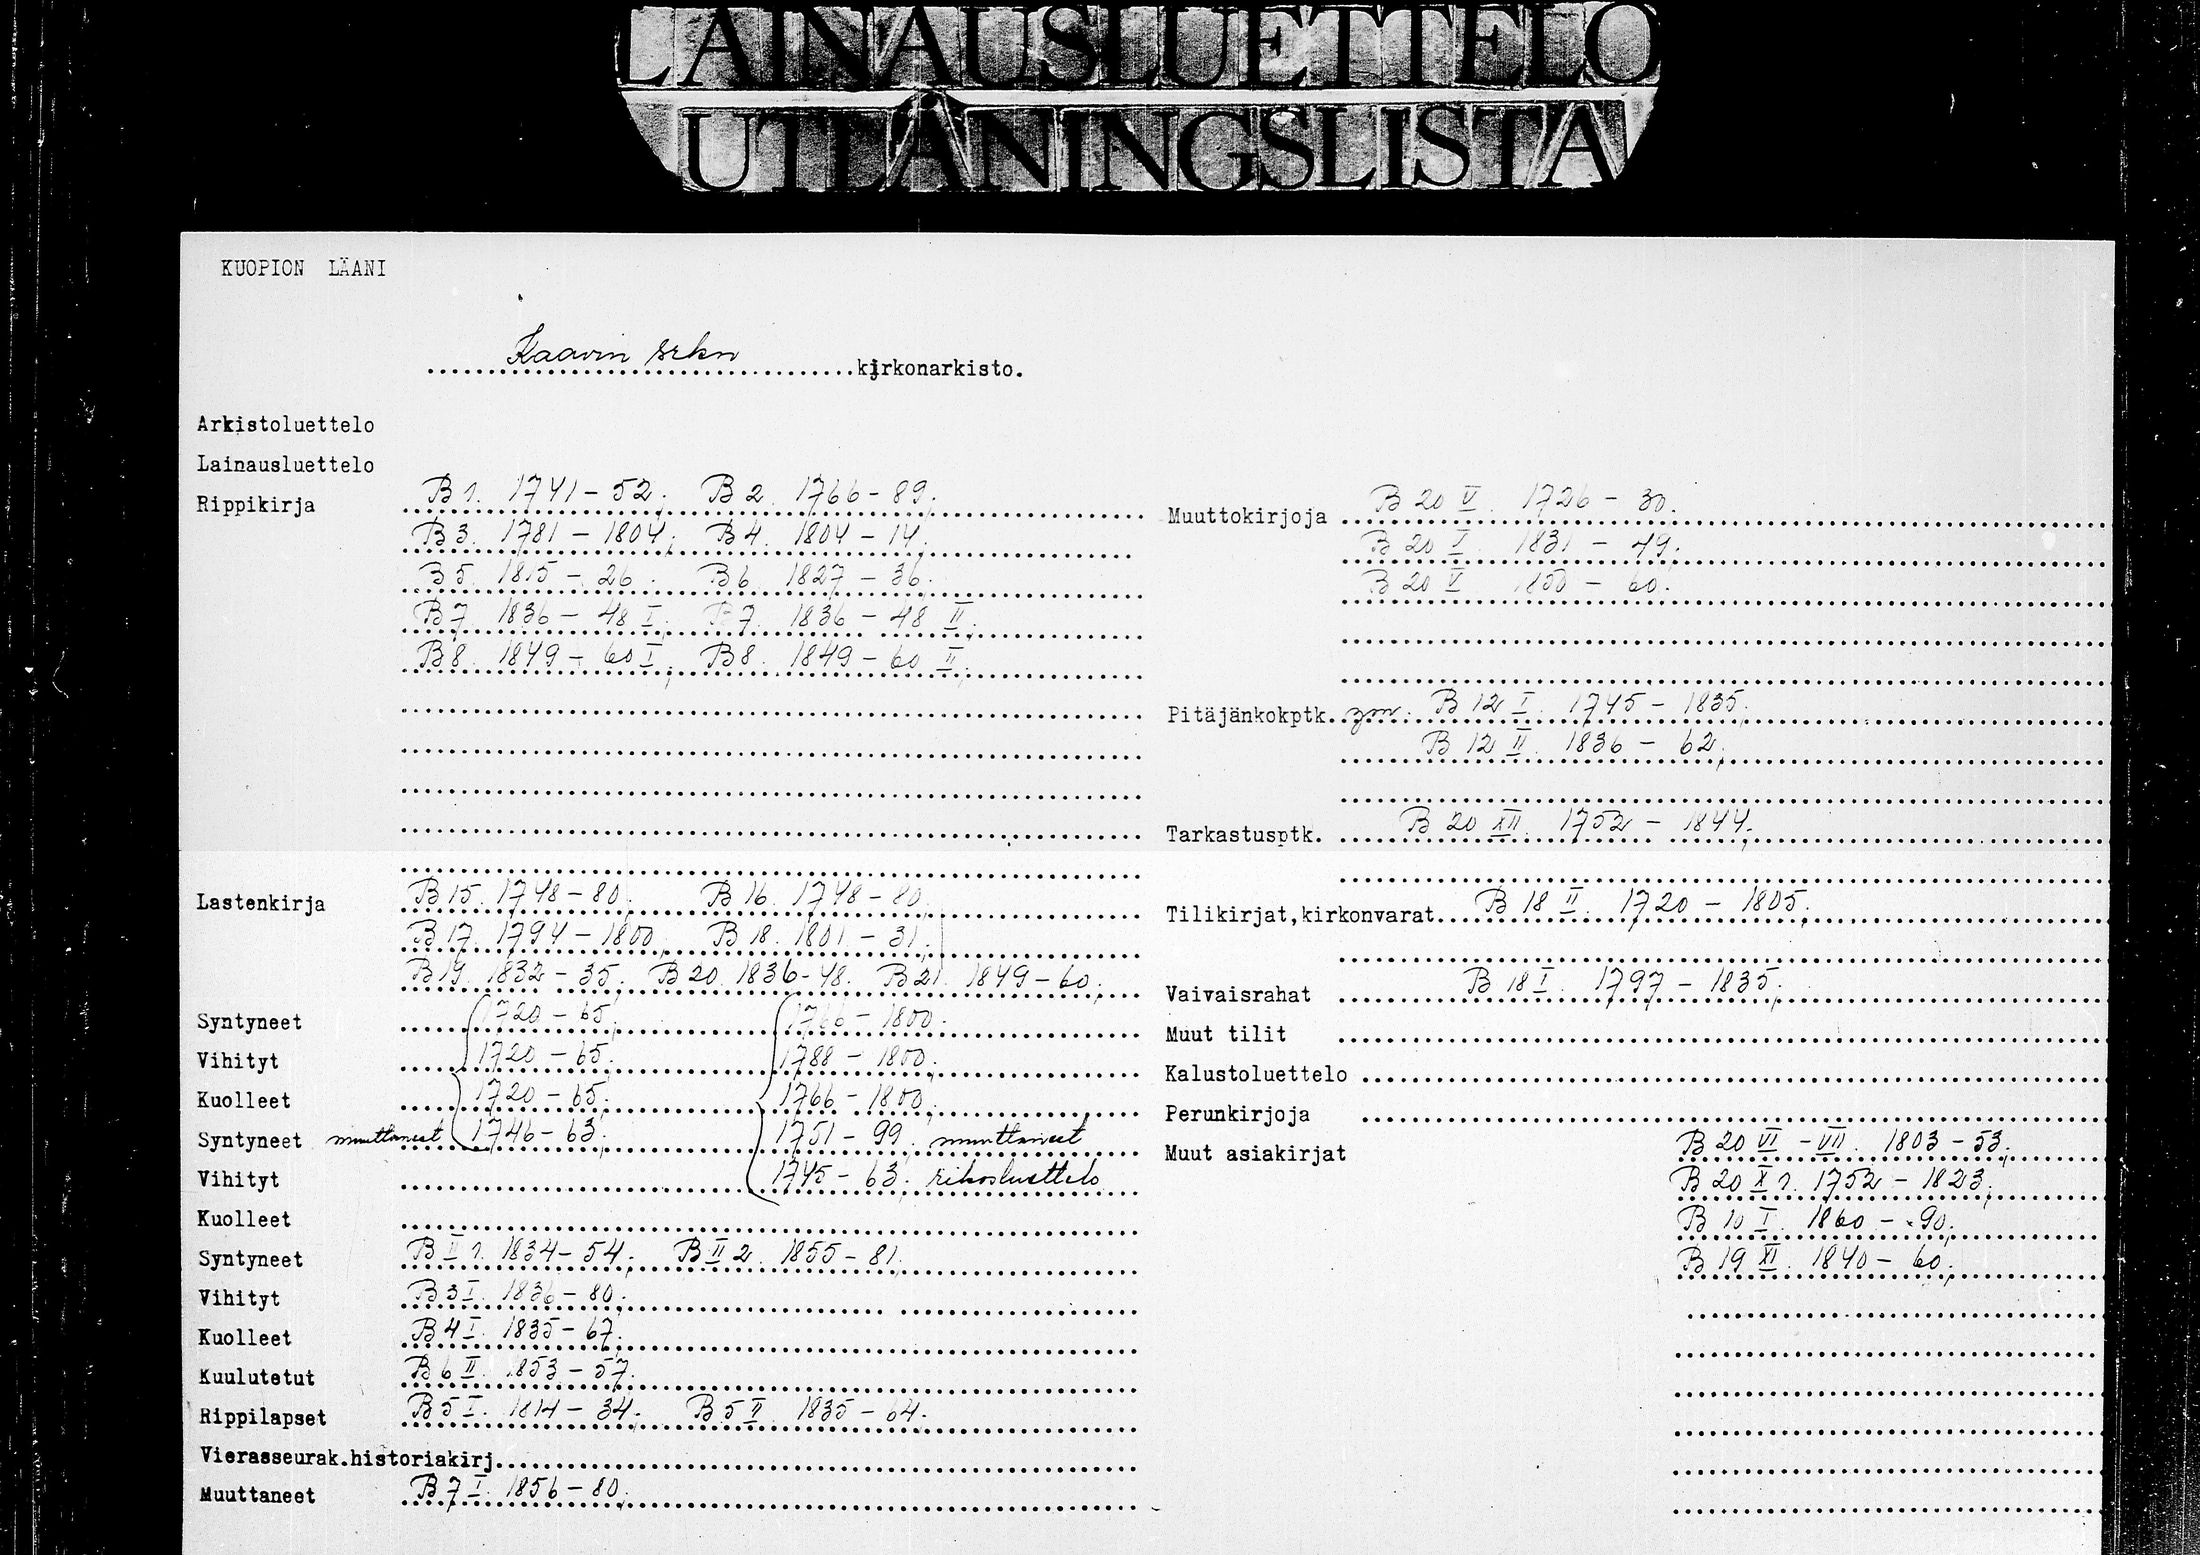 LAINAUSLUETTELO
UTLÅNINGSLISTA
KUOPION LÄÄNI
Kaavin srkn kirkonarkisto.
Arkistoluettelo
Lainausluettelo
Rippikirja B 1. 1741 - 52; B 2. 1766 - 89;
B 3. 1781 - 1804; B 4. 1804 - 14;
B 5. 1815 - 26; B 6. 1827 - 36;
B 7. 1836 - 48 I; B 7. 1836 - 48 II;
B 8. 1849 - 60 I; B 8. 1849 - 60 II;
Lastenkirja B 15. 1748 - 80; B 16. 1748 - 80;
B 17. 1794 - 1800; B 18. 1801 - 31;
B 19. 1832 - 35; B 20. 1836 - 48. B 21. 1849 - 60;
Syntyneet 1720 - 65; 1766 - 1800;
Vihityt 1720 - 65; 1788 - 1800;
Kuolleet 1720 - 65; 1766 - 1800;
Syntyneet muuttaneet 1746 - 63; 1751 - 99. muuttaneet
Vihityt 1745 - 63; rikosluettelo
Kuolleet
Syntyneet B II 1. 1834 - 54; B II 2. 1855 - 81;
Vihityt B 3 I. 1836 - 80;
Kuolleet B 4 I. 1835 - 67;
Kuulutetut B 6 II. 1853 - 57.
Rippilapset B 5 I. 1814 - 34; B 5 II. 1835 - 64.
Vierasseurak.historiakirj.
Muuttaneet B 7 I. 1856 - 80;
Muuttokirjoja B 20 V. 1726 - 30.
B 20 I. 1831 - 49;
B 20 V. 1850 - 60.
Pitäjänkokptk. B 12 I. 1745 - 1835;
B 12 II. 1836 - 62;
Tarkastusptk. B 20 XII. 1752 - 1844;
Tilikirjat,kirkonvarat B 18 II. 1720 - 1805;
Vaivaisrahat B 18 I. 1797 - 1835;
Muut tilit
Kalustoluettelo
Perunkirjoja
Muut asiakirjat B 20 VI - VII. 1803 - 53;
B 20 X 1. 1752 - 1823;
B 10 I. 1860 - 90;
B 19 XI. 1840 - 60;